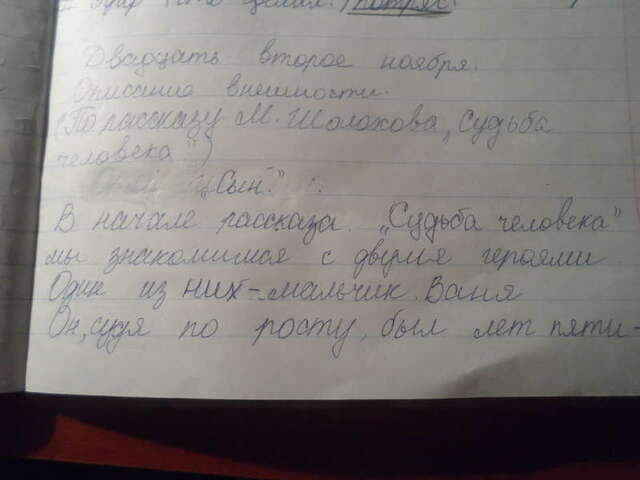 Двадцать второе ноября.
Описание внешности.
(По рассказу М. Шолохова „Судьба
человека")
„Сын."
В начале рассказа „Судьба человека"
мы знакомимся с двумя героями
Один из них - мальчик Ваня
Он, судя по росту, был лет пяти-